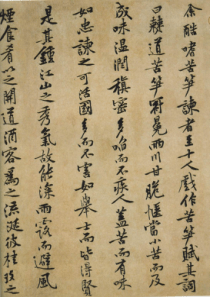 余酷嗜苦筍諫者至十人戲作苦筍賦其詞
曰僰道苦筍冠冕兩川甘脆愜當小苦而反
成味溫潤縝密多啗而不疾人蓋苦而有味
如忠諫之可活國多而不害如舉士而皆得賢
是其鍾江山之秀氣故能深雨露而避風
煙食肴以之開道酒客為之流涎彼桂玫之